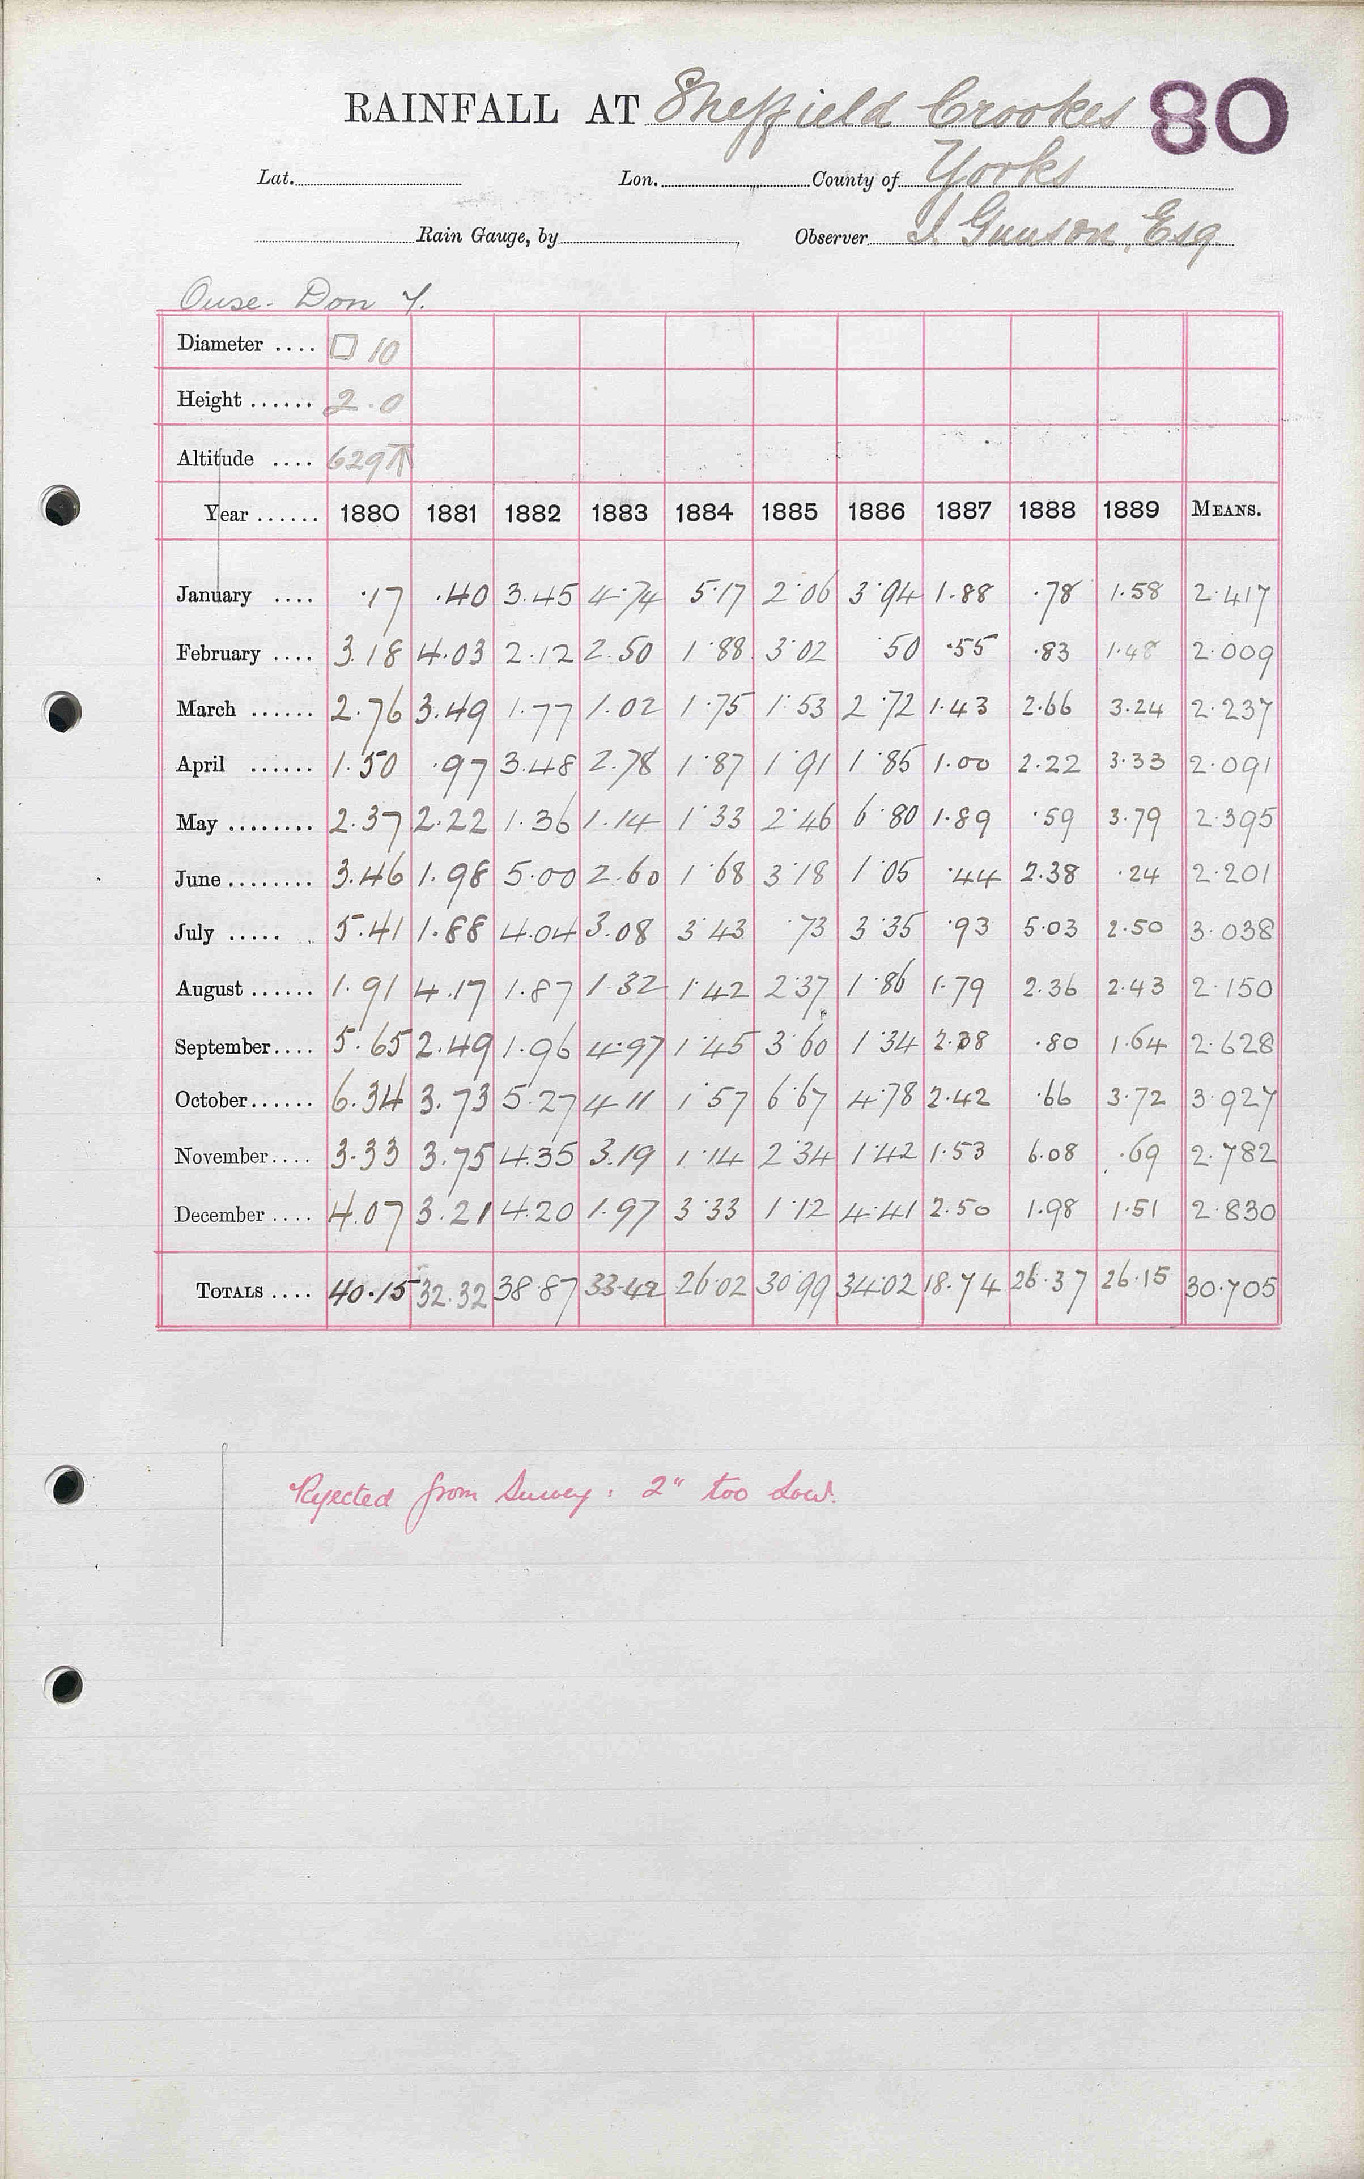 RAINFALL AT Sheffield Crookes 80
Lat. Lon. County of Yorks
Rain Gauge, by Observer J. Gunson, Esq.
Ouse - Don Y.
Diameter .... □ 10
Height ...... 2.0
Altitude .... 629 ↑
Year ...... 1880 1881 1882 1883 1884 1885 1886 1887 1888 1889 MEANS.
January .... .17 .40 3.45 4.74 5.17 2.06 3.94 1.88 .78 1.58 2.417
February .... 3.18 4.03 2.12 2.50 1.88 3.02 .50 .55 .83 1.48 2.009
March ...... 2.76 3.49 1.77 1.02 1.75 1.53 2.72 1.43 2.66 3.24 2.237
April ...... 1.50 .97 3.48 2.78 1.87 1.91 1.85 1.00 2.22 3.33 2.091
May ........ 2.37 2.22 1.36 1.14 1.33 2.46 6.80 1.89 .59 3.79 2.395
June ........ 3.46 1.98 5.00 2.60 1.68 3.18 1.05 .44 2.38 .24 2.201
July ..... . 5.41 1.88 4.04 3.08 3.43 .73 3.35 .93 5.03 2.50 3.038
August ...... 1.91 4.17 1.87 1.32 1.42 2.37 1.86 1.79 2.36 2.43 2.150
September.... 5.65 2.49 1.96 4.97 1.45 3.60 1.34 2.38 .80 1.64 2.628
October...... 6.34 3.73 5.27 4.11 1.57 6.67 4.78 2.42 .66 3.72 3.927
November.... 3.33 3.75 4.35 3.19 1.14 2.34 1.42 1.53 6.08 .69 2.782
December .... 4.07 3.21 4.20 1.97 3.33 1.12 4.41 2.50 1.98 1.51 2.830
TOTALS .... 40.15 32.32 38.87 33.42 26.02 30.99 34.02 18.74 26.37 26.15 30.705
Rejected from Survey: 2" too low.